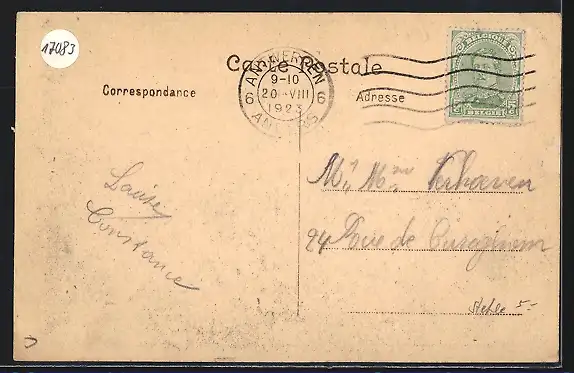 17083
Carte Postale
BELGIQUE
5c 5c
BELGIË
ANTWERPEN
9-10
6 20 VIII 6
1923
ANVERS
Correspondance
Adresse
Mr Mme Verhoeven
24 Rue de
Louise
Constance
5-